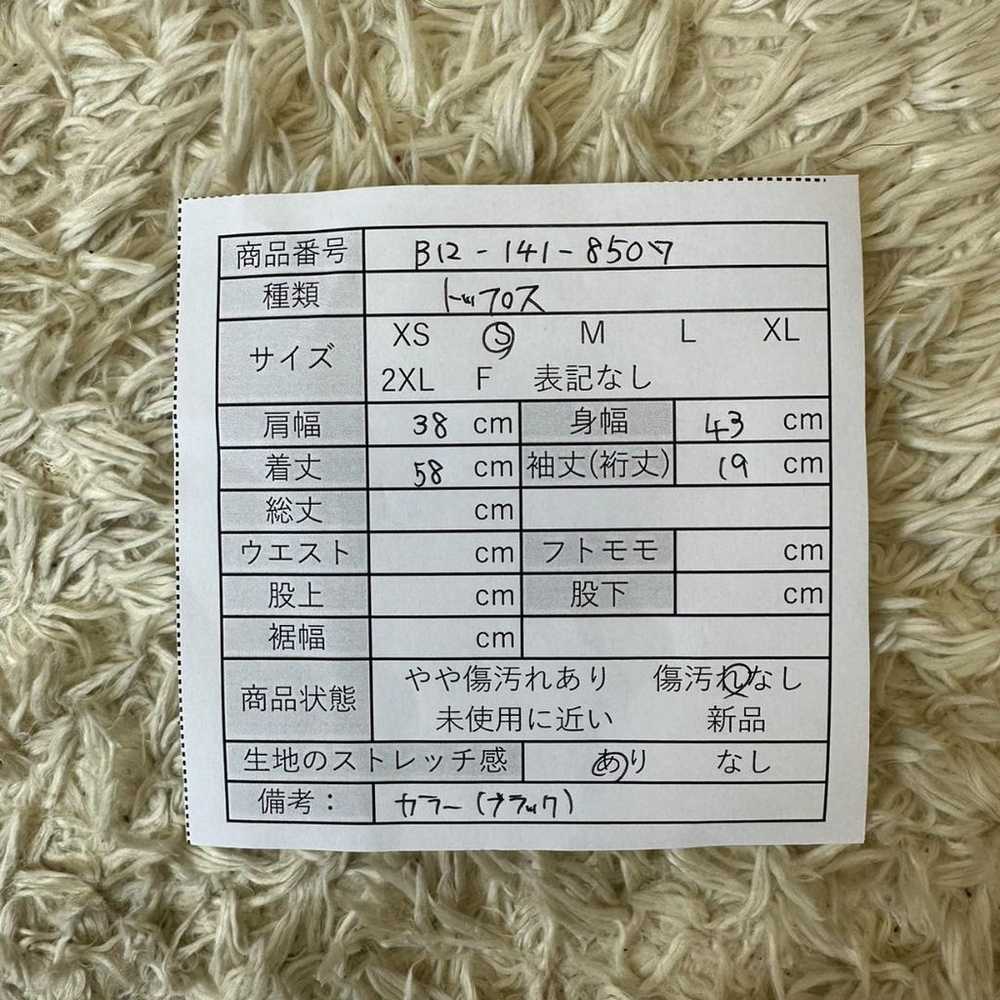 商品番号 B12-141-8507
種類 トップス
サイズ XS S M L XL
2XL F 表記なし
肩幅 38 cm 身幅 43 cm
着丈 58 cm 袖丈(裄丈) 19 cm
総丈 cm
ウエスト cm フトモモ cm
股上 cm 股下 cm
裾幅 cm
商品状態 やや傷汚れあり 傷汚れなし
未使用に近い 新品
生地のストレッチ感 あり なし
備考： カラー(ブラック)